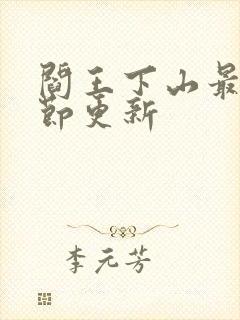 閻王下山最
節更新
李元芳